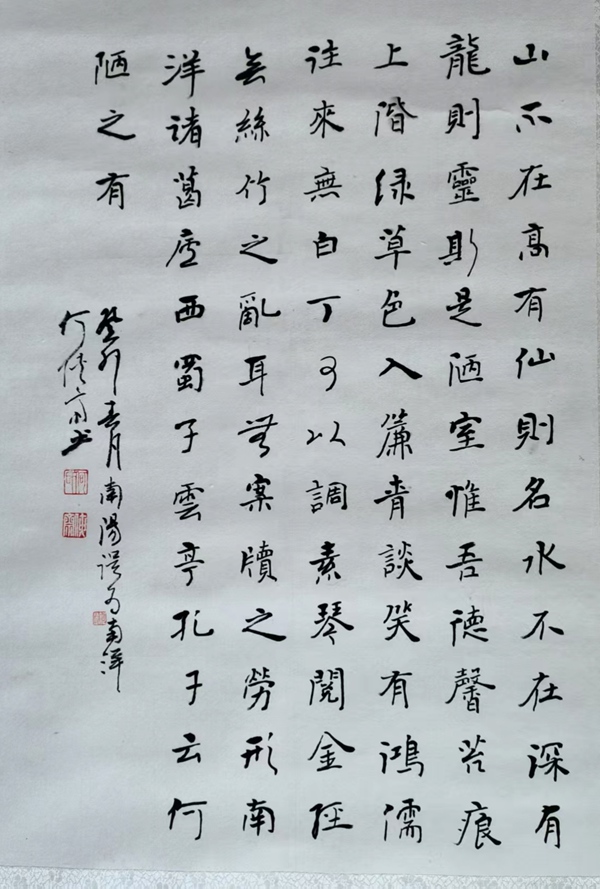 山不在高有仙則名水不在深有
龍則靈斯是陋室惟吾德馨苔痕
上階绿草色入簾青談笑有鴻儒
往來無白丁可以調素琴閱金經
無絲竹之亂耳無案牘之勞形南
洋諸葛廬西蜀子雲亭孔子云何
陋之有
癸卯春月南陽误为南洋
何书